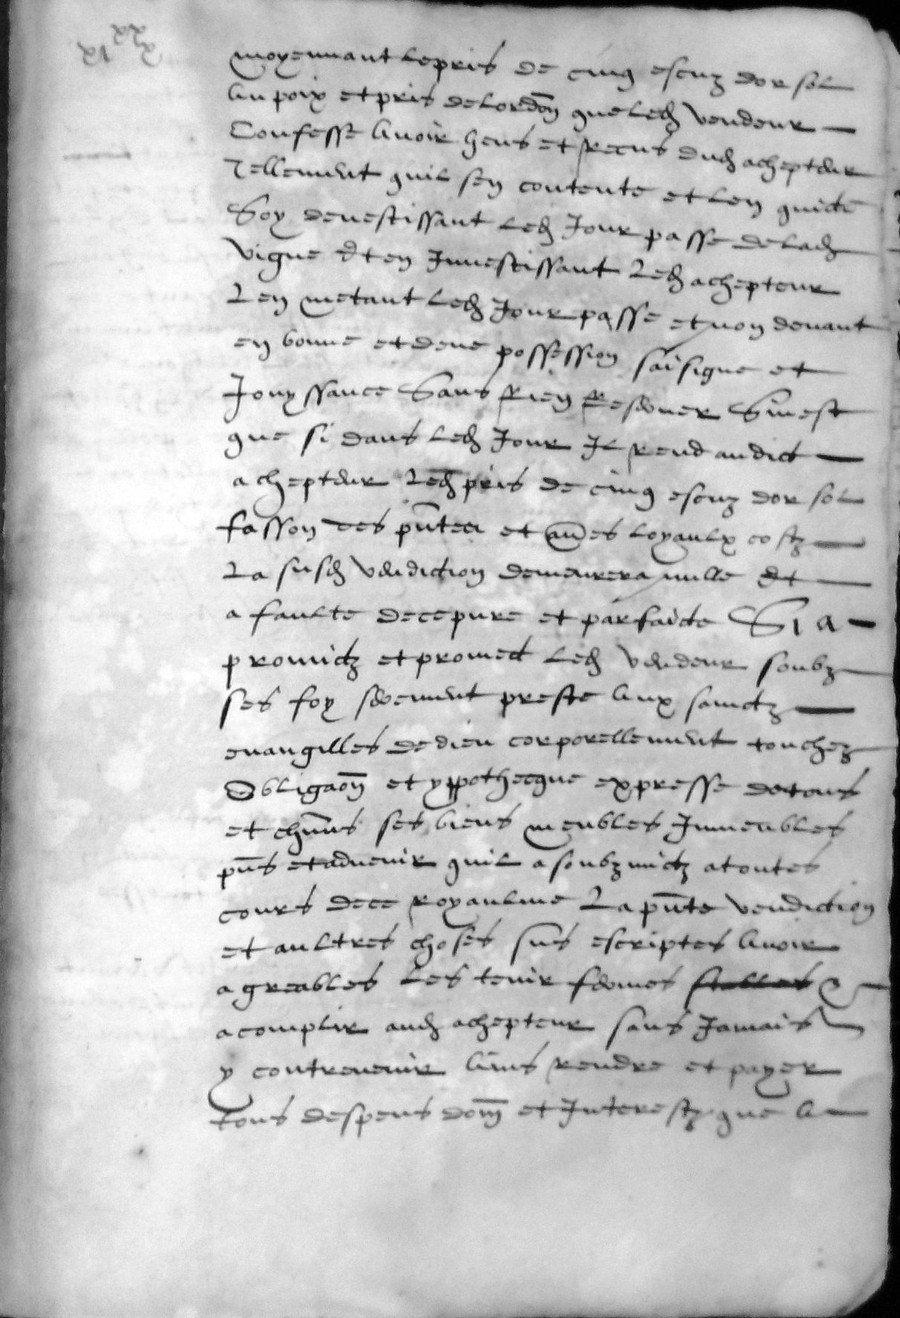 moyennant le pris de cinq escuz dor sol
au poix et pris de lordon que led vendeur
Confesse avoir heus et receus dud achepteur
Tellement quil sen contente et len quicte
Soy devestissant led Jour passe de lad
vigne et en Jnvestissant led achepteur
Len metant led Jour passe et non devant
en bonne et deue possession saisigne et
Jouyssance Sans Rien Reserver Sinest
que si dans led Jour Il rend audict
achepteur led pris de cinq escuz dor sol
fasson des pntes et aues loyaulx costz
La susd vendiction demeurera nulle et
a faulte de ce pure et parfaicte Si a
promictz et promect led vendeur soubz
ses foy serement preste aux sainctz
evangilles de dieu corporellement touchez
Obligaon et yppothecque expresse de tous
et chuns ses biens meubles Jmeubles
pns et advenir quil a soubzmictz a toutes
cours de ce Royaulme La pnte vendiction
et aultres choses sus escriptes avoir
agreables les tenir fermes &
acomplir aud achepteur sans Jamais
y contrevenir ains rendre et payer
tous despens dom et Jnterestz que a